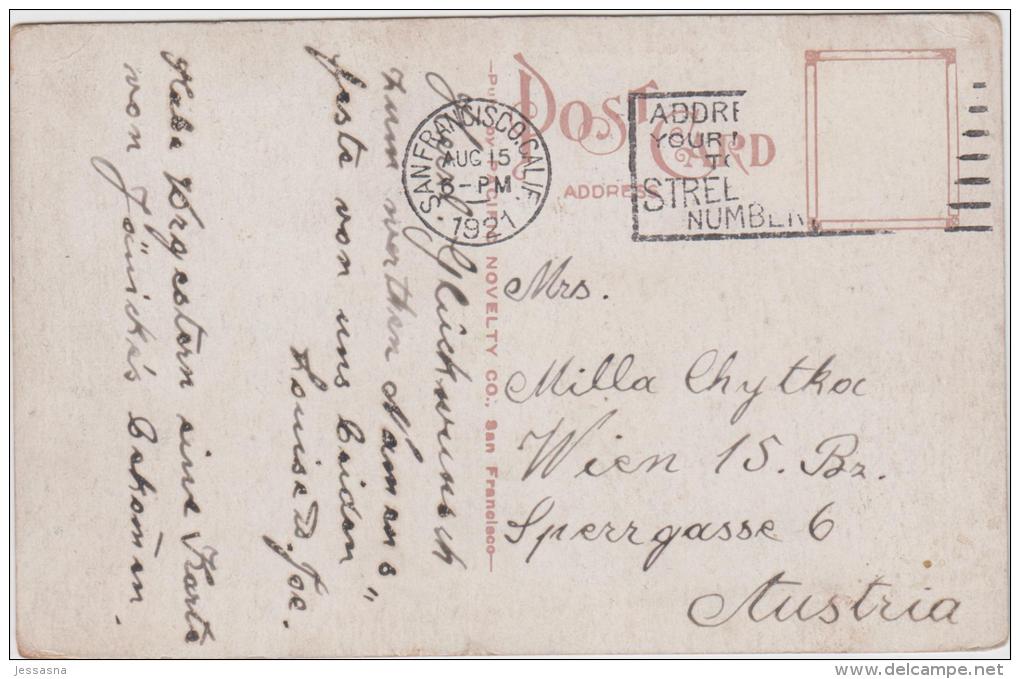 POST CARD
ADDRESS
SAN FRANCISCO, CALIF.
AUG 15
6-PM
1921
ADDRE
YOUR
TO
STREE
NUMBER
NOVELTY CO., San Francisco
Glückwunsch
zum werthen Namens"
feste von uns beiden
Louise D. Joe.
Habe Vorgestern eine Karte
von bekom̄en.
Mrs.
Milla Chytka
Wien 15. Bz.
Sperrgasse 6
Austria
jessasna
www.delcampe.net